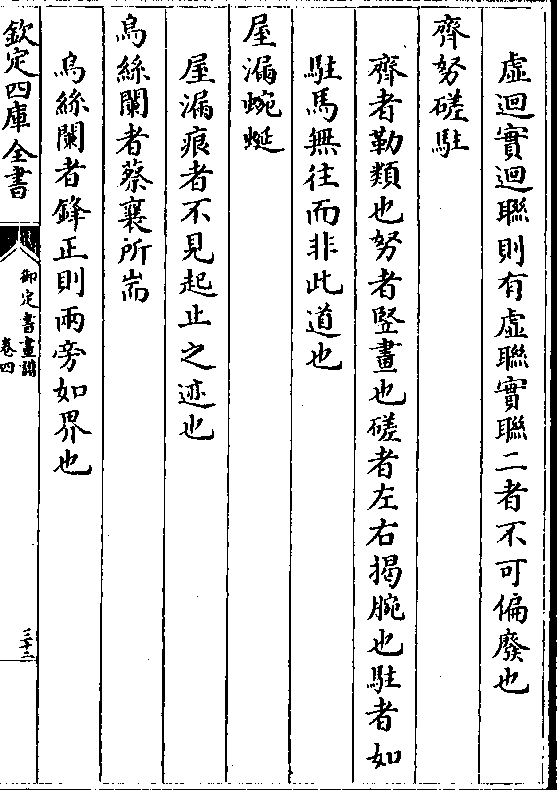 虛迴實迴聯則有虛聯實聯二者不可偏廢也
齊努磋駐
齊者勒類也努者竪畫也磋者左右揭腕也駐者如
駐馬無往而非此道也
屋漏蜿蜒
屋漏痕者不見起止之迹也
烏絲闌者蔡襄所耑
烏絲闌者鋒正則兩旁如界也
欽定四庫全書
御定書畫譜
卷四
三十二